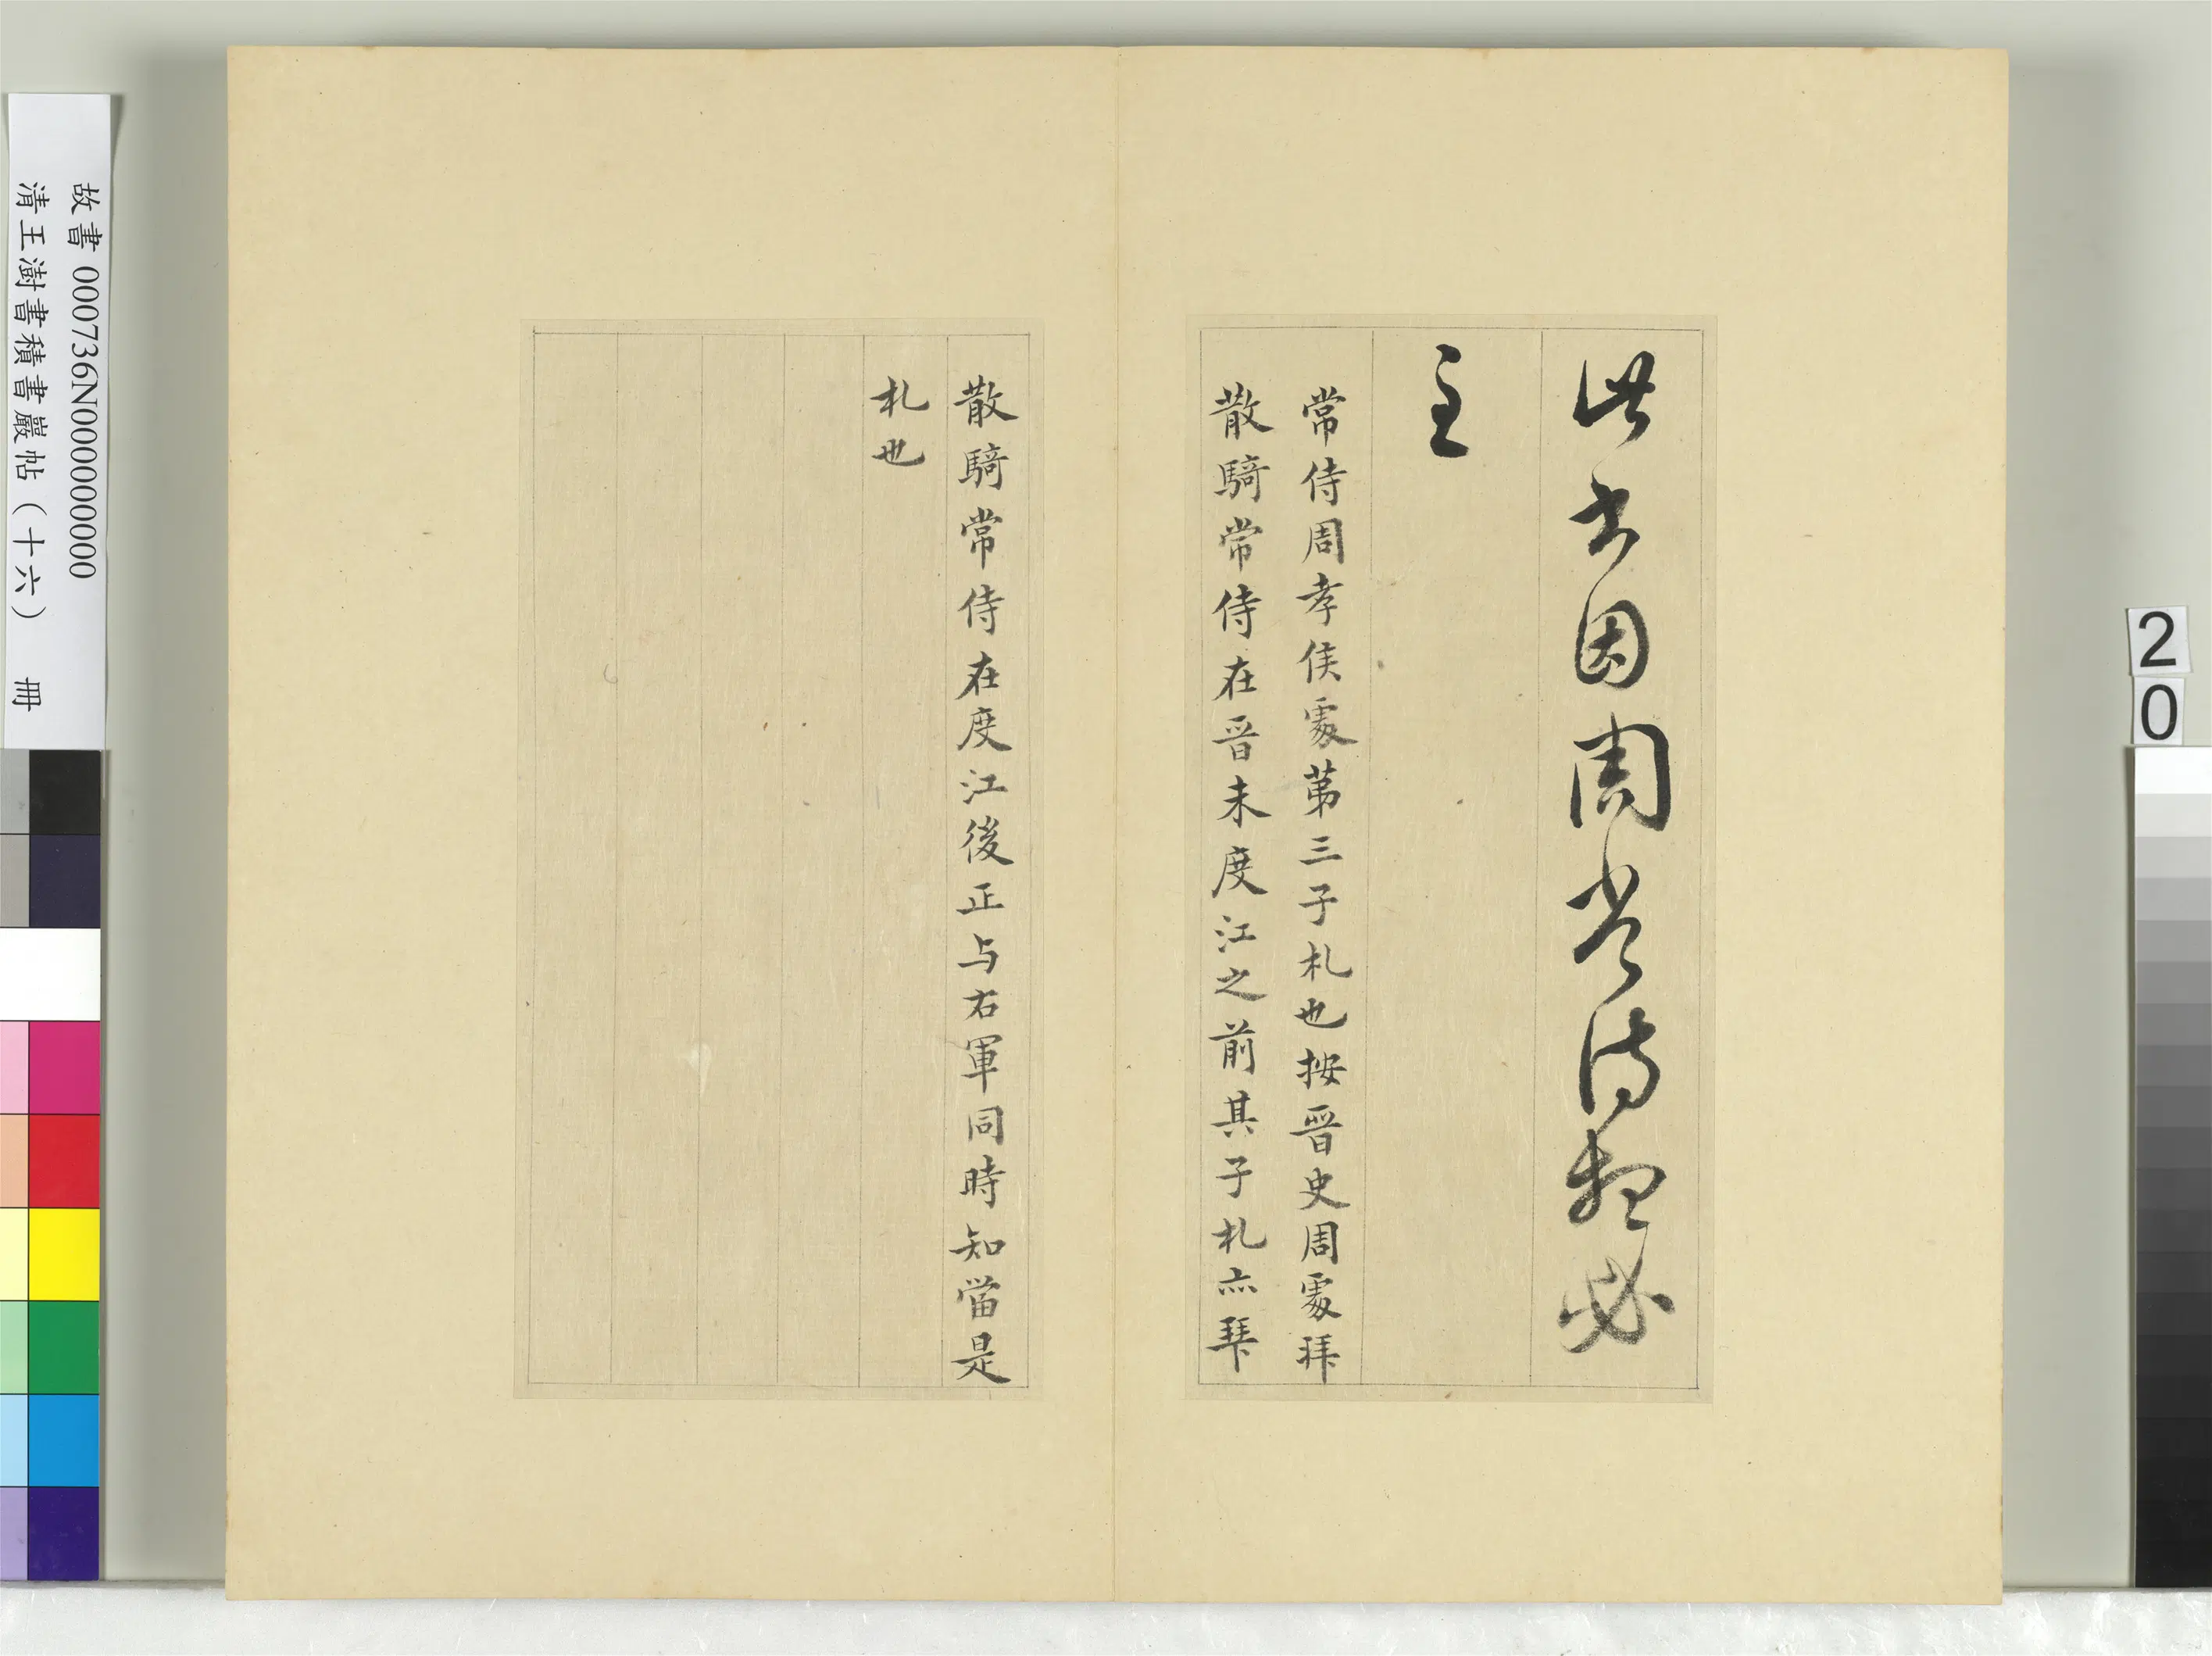 此書因周常侍想必
至
常侍周孝侯䖏苐三子札也按晉史周䖏拜
散騎常侍在晉未度江之前其子札亦拜
散騎常侍在度江後正与右軍同時知當是
札也
故書 000736N000000000
清王澍書積書巖帖（十六） 冊
20